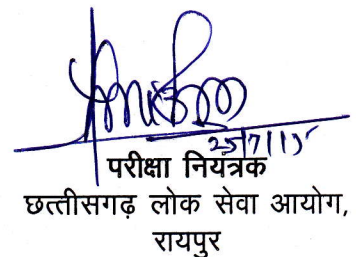 25/7/15
परीक्षा नियंत्रक
छत्तीसगढ़ लोक सेवा आयोग,
रायपुर